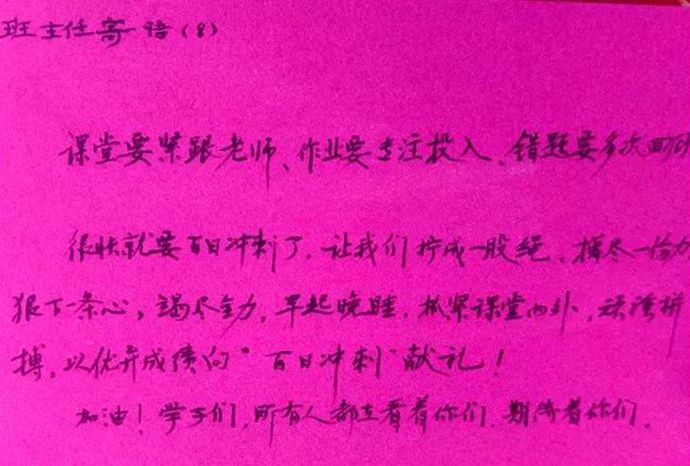 班主任寄语(8)
课堂要紧跟老师、作业要专注投入、错题要多次
很快就要百日冲刺了,让我们拧成一股绳、攥尽一份力
狠下一条心,竭尽全力,早起晚睡,抓紧课堂内外,顽强拼
搏,以优异成绩向“百日冲刺”献礼!
加油!学子们,所有人都在看着你们,期待着你们。